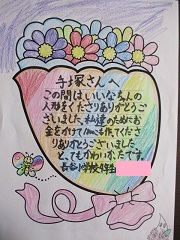 手塚さんへ
この間はいいなちょんの
人形をくださりありがとうご
ざいました。私達のためにお
金をかけて10こも作ってくださ
りありがとうございました。
とってもかわいかったです。
小学校4年生